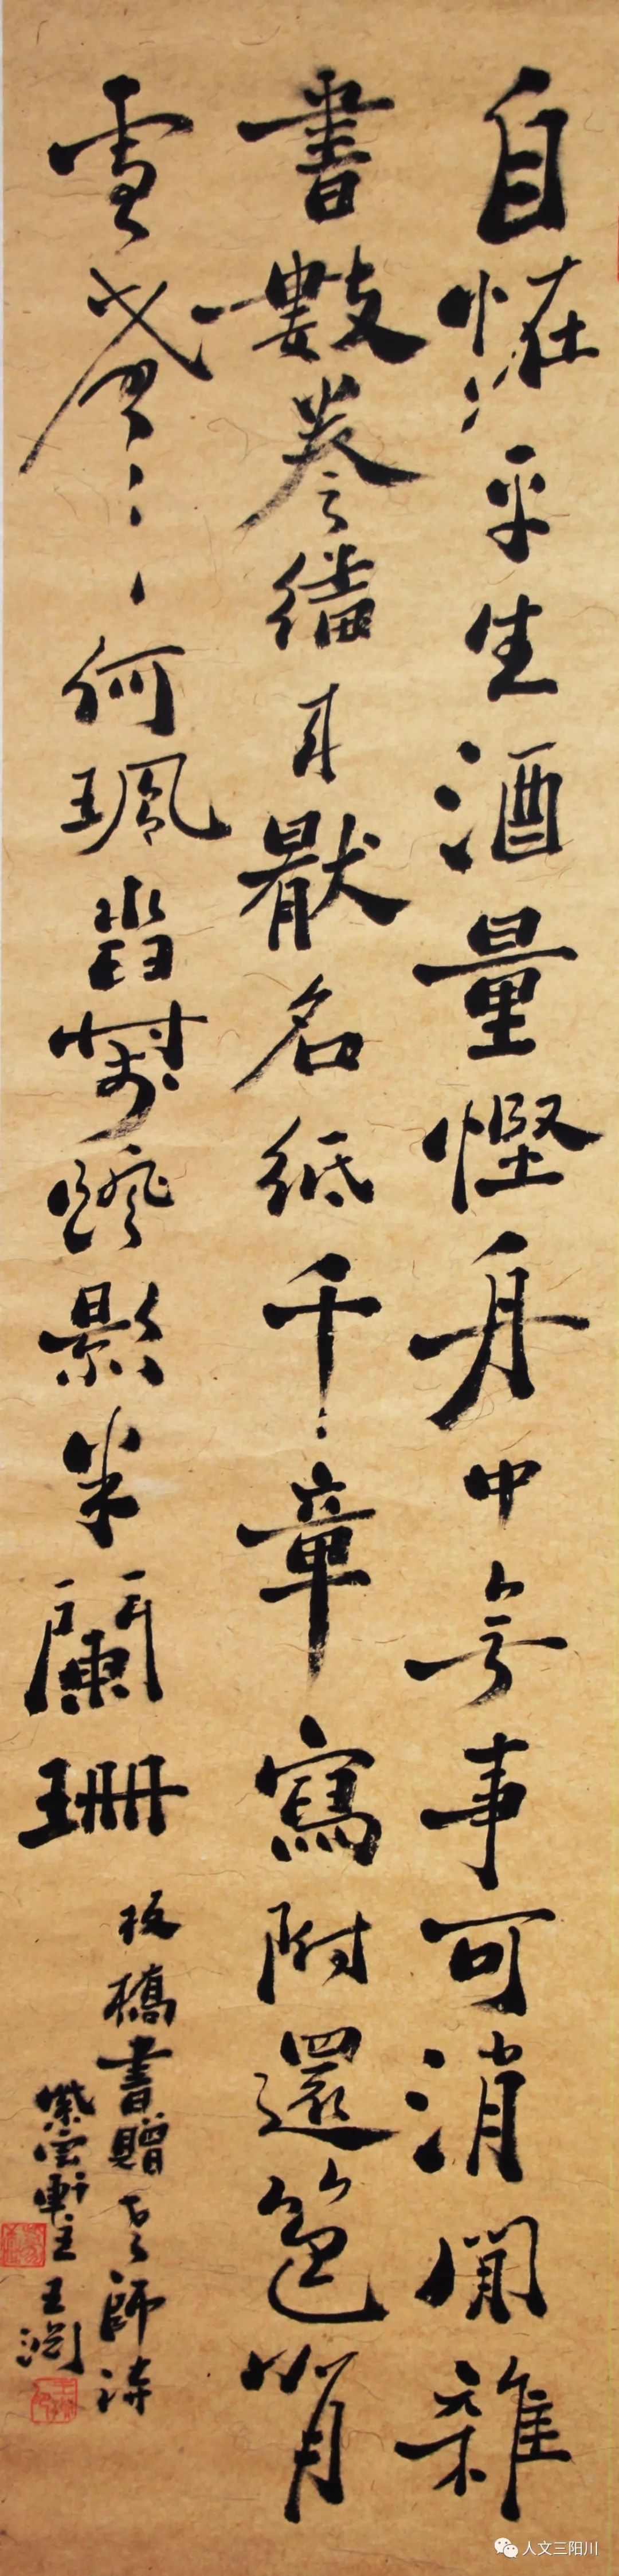 自怪平生酒量慳舟中無事可消閒雜
書數卷繙來厭名紙千章寫附還篋背
雪聲何珮沓夢𨂍影半闌珊
板橋書贈老師詩
紫雲軒主王淵
人文三阳川